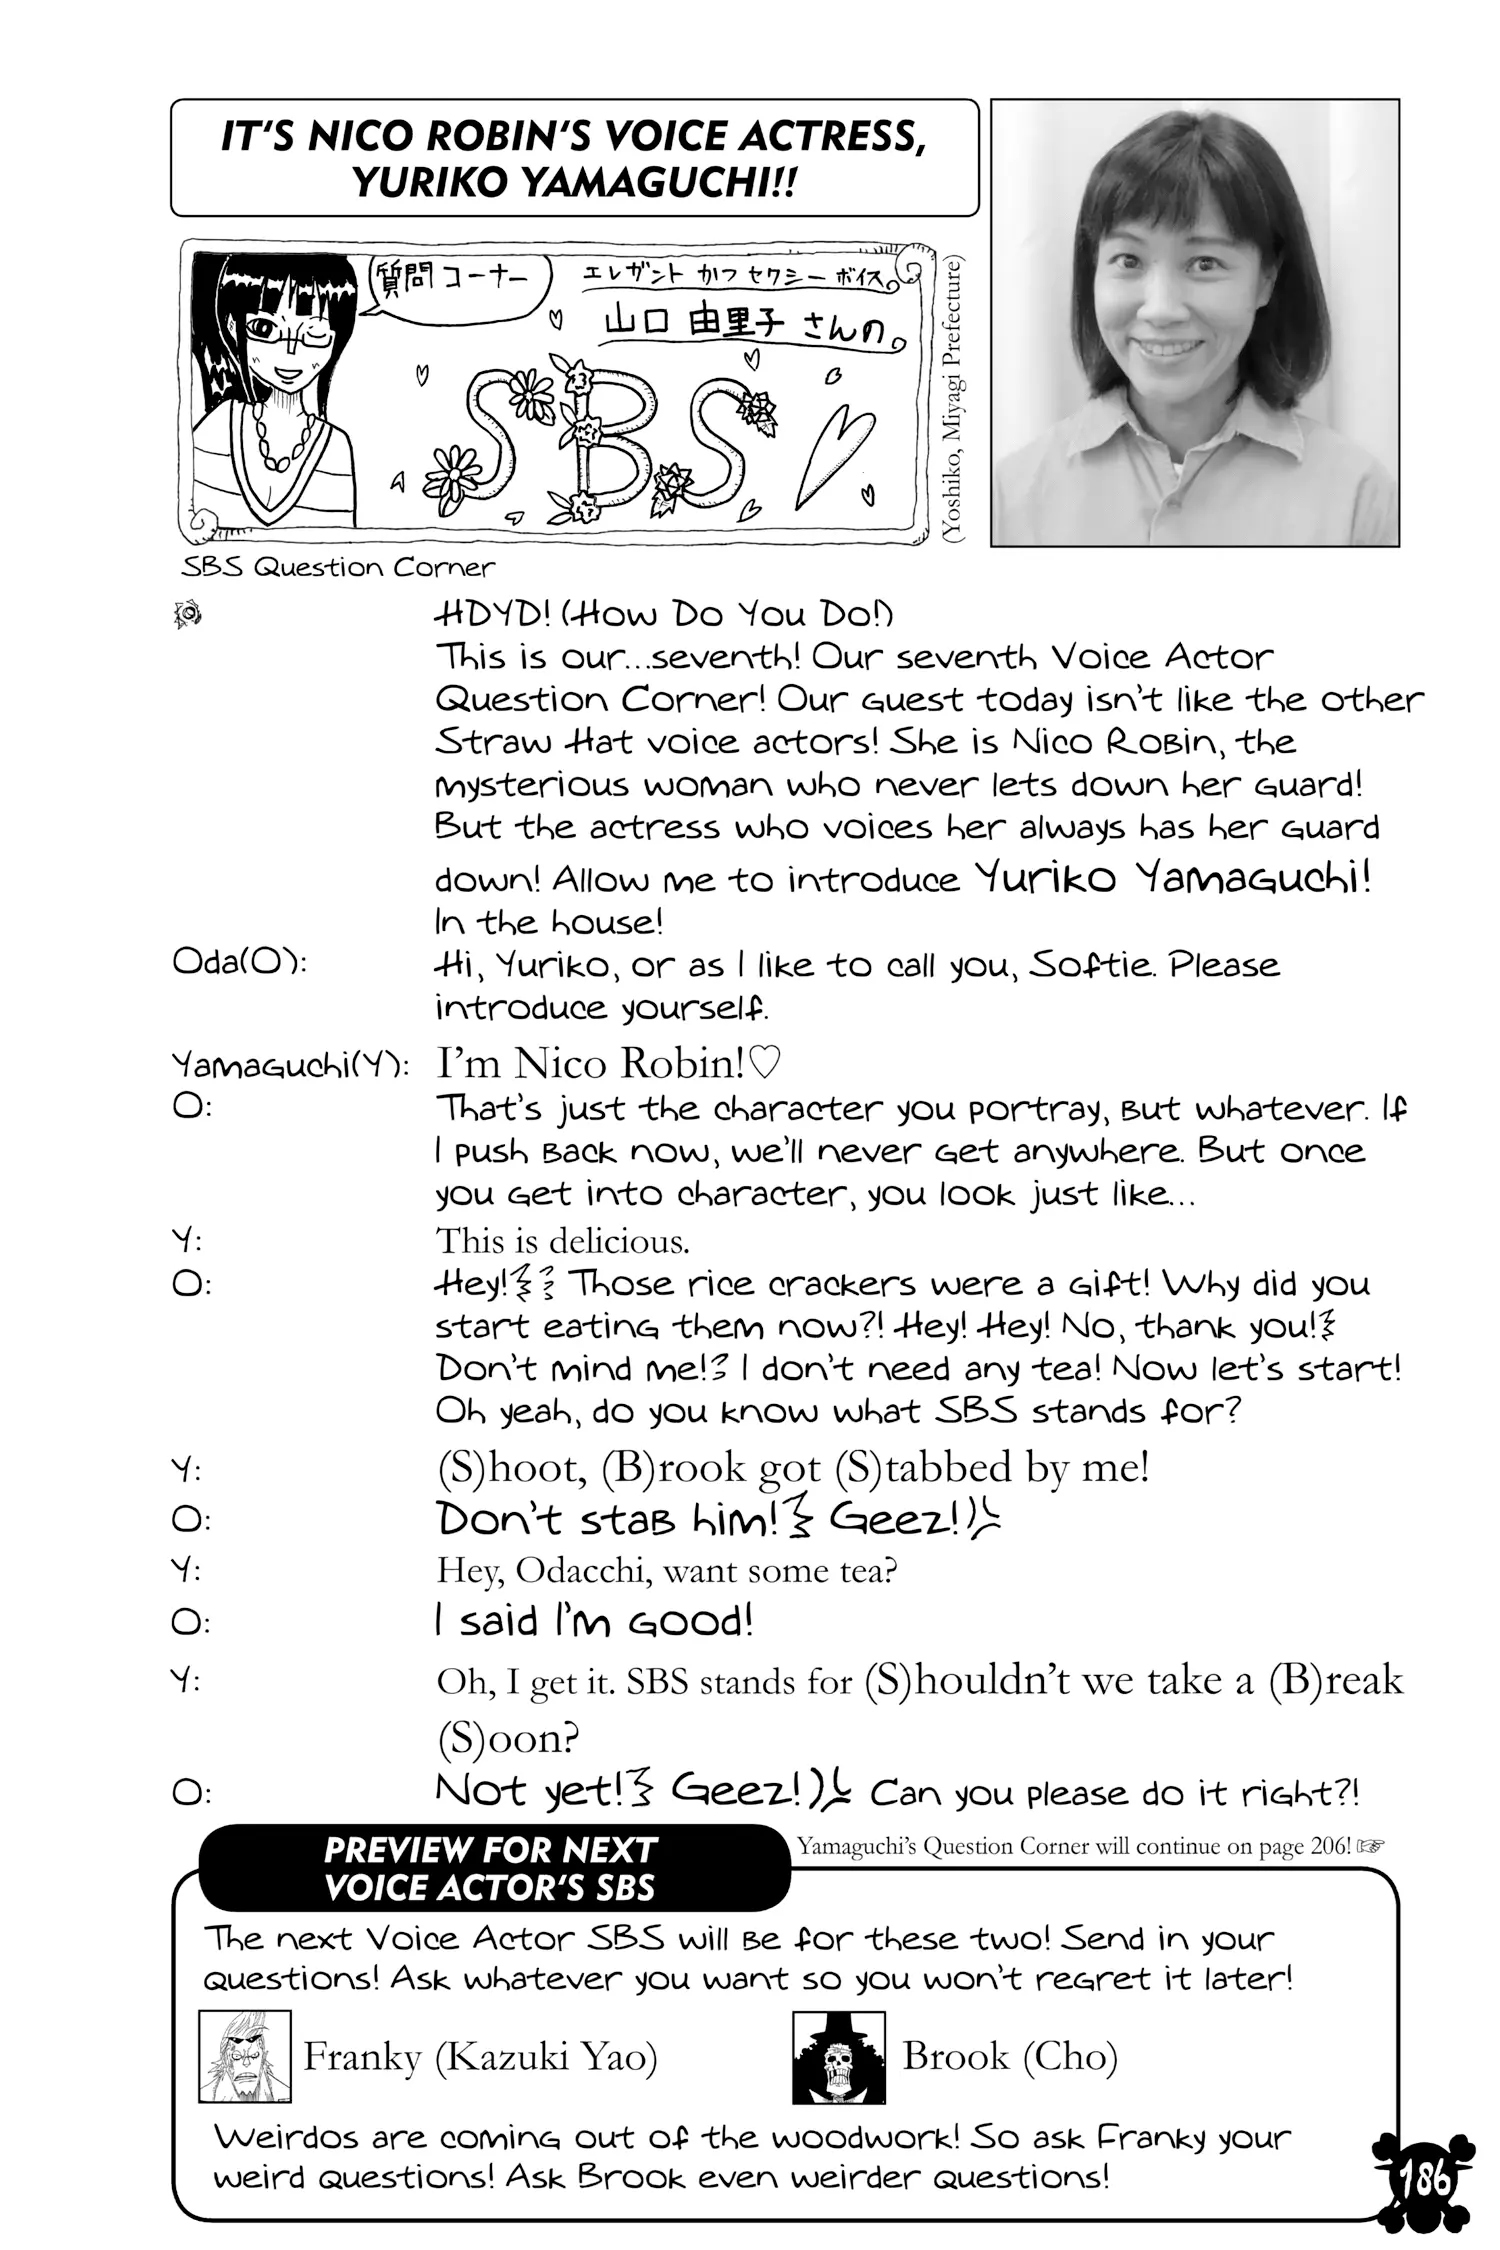 IT'S NICO ROBIN'S VOICE ACTRESS,
YURIKO YAMAGUCHI!!
質問コーナー
エレガント かつ セクシー ボイス。
山口 由里子 さんの。
SBS
(Yoshiko, Miyagi Prefecture)
SBS Question Corner
HDYD! (How Do You Do!)
This is our...seventh! Our seventh Voice Actor
Question Corner! Our guest today isn't like the other
Straw Hat voice actors! She is Nico Robin, the
mysterious woman who never lets down her guard!
But the actress who voices her always has her guard
down! Allow me to introduce Yuriko Yamaguchi!
In the house!
Oda(O): Hi, Yuriko, or as I like to call you, Softie. Please
introduce yourself.
Yamaguchi(Y): I'm Nico Robin!♡
O: That's just the character you portray, but whatever. If
I push back now, we'll never get anywhere. But once
you get into character, you look just like...
Y: This is delicious.
O: Hey! Those rice crackers were a gift! Why did you
start eating them now?! Hey! Hey! No, thank you!
Don't mind me! I don't need any tea! Now let's start!
Oh yeah, do you know what SBS stands for?
Y: (S)hoot, (B)rook got (S)tabbed by me!
O: Don't stab him! Geez!
Y: Hey, Odacchi, want some tea?
O: I said I'm good!
Y: Oh, I get it. SBS stands for (S)houldn't we take a (B)reak
(S)oon?
O: Not yet! Geez! Can you please do it right?!
Yamaguchi's Question Corner will continue on page 206!☞
PREVIEW FOR NEXT
VOICE ACTOR'S SBS
The next Voice Actor SBS will be for these two! Send in your
questions! Ask whatever you want so you won't regret it later!
Franky (Kazuki Yao) Brook (Cho)
Weirdos are coming out of the woodwork! So ask Franky your
weird questions! Ask Brook even weirder questions!
186